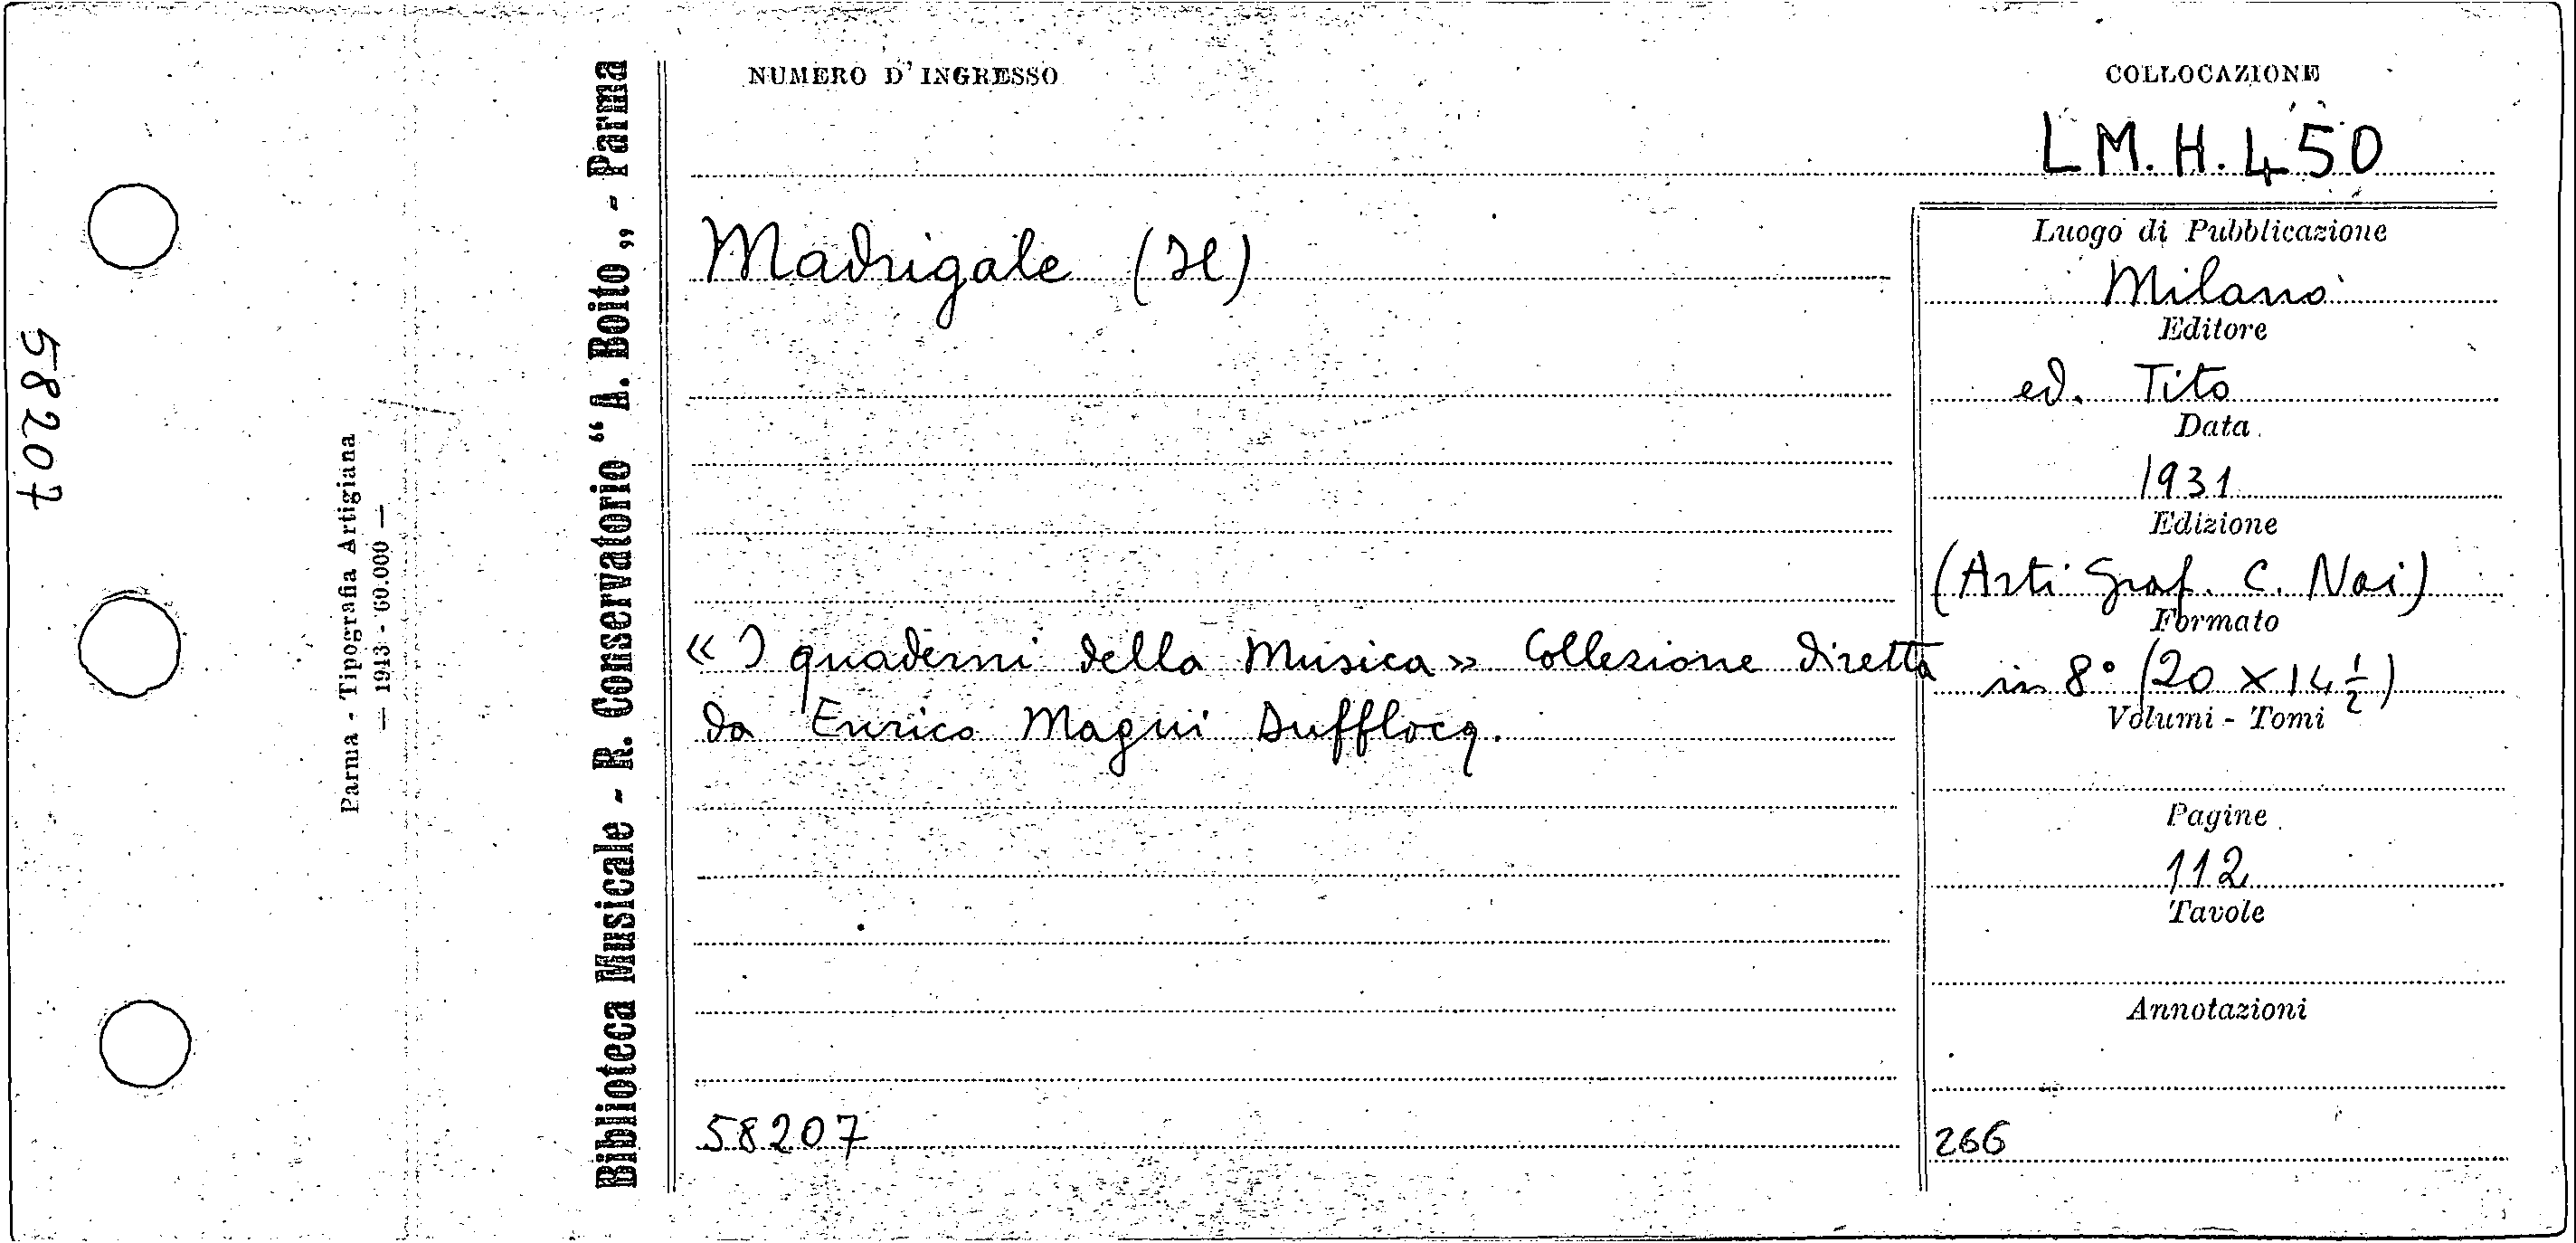 58207
Parma - Tipografia Artigiana
— 1943 - 60.000 —
Biblioteca Musicale - R. Conservatorio “ A. Boito „ - Parma
NUMERO D'INGRESSO
COLLOCAZIONE
LM.H.450
Madrigale (Il)
«I quaderni della Musica» Collezione diretta
da Enrico Magni Dufflocq.
58207
Luogo di Pubblicazione
Milano
Editore
ed. Tito
Data
1931
Edizione
(Arti Graf. C. Nai)
Formato
in 8° (20 × 14 ½)
Volumi - Tomi
Pagine
112
Tavole
Annotazioni
266